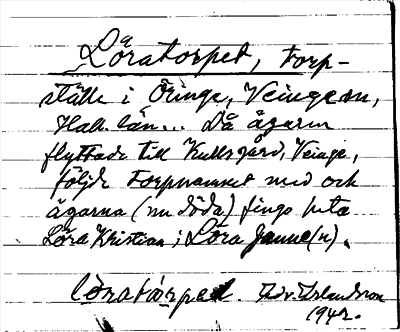 Löratorpet, torp-
ställe i Öringe, Veinge sn,
Hall. län... Då ägaren
flyttade till Kullsgård, Veinge,
följde torpnamnet med och
ägarna (nu döda) fingo heta
Löra Kristian; Löra Janne(n).
löratòrpet. Edv. Erlandsson
1942.